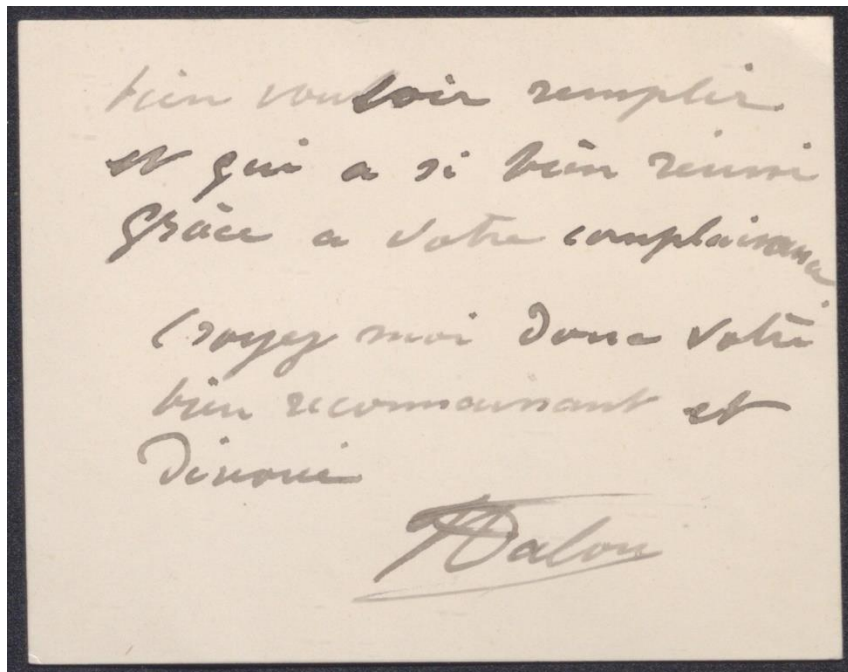 bien vouloir remplir
et qui a si bien réussi
grâce a votre complaisance
Croyez moi donc votre
bien reconnaissant et
dévoué
Dalou